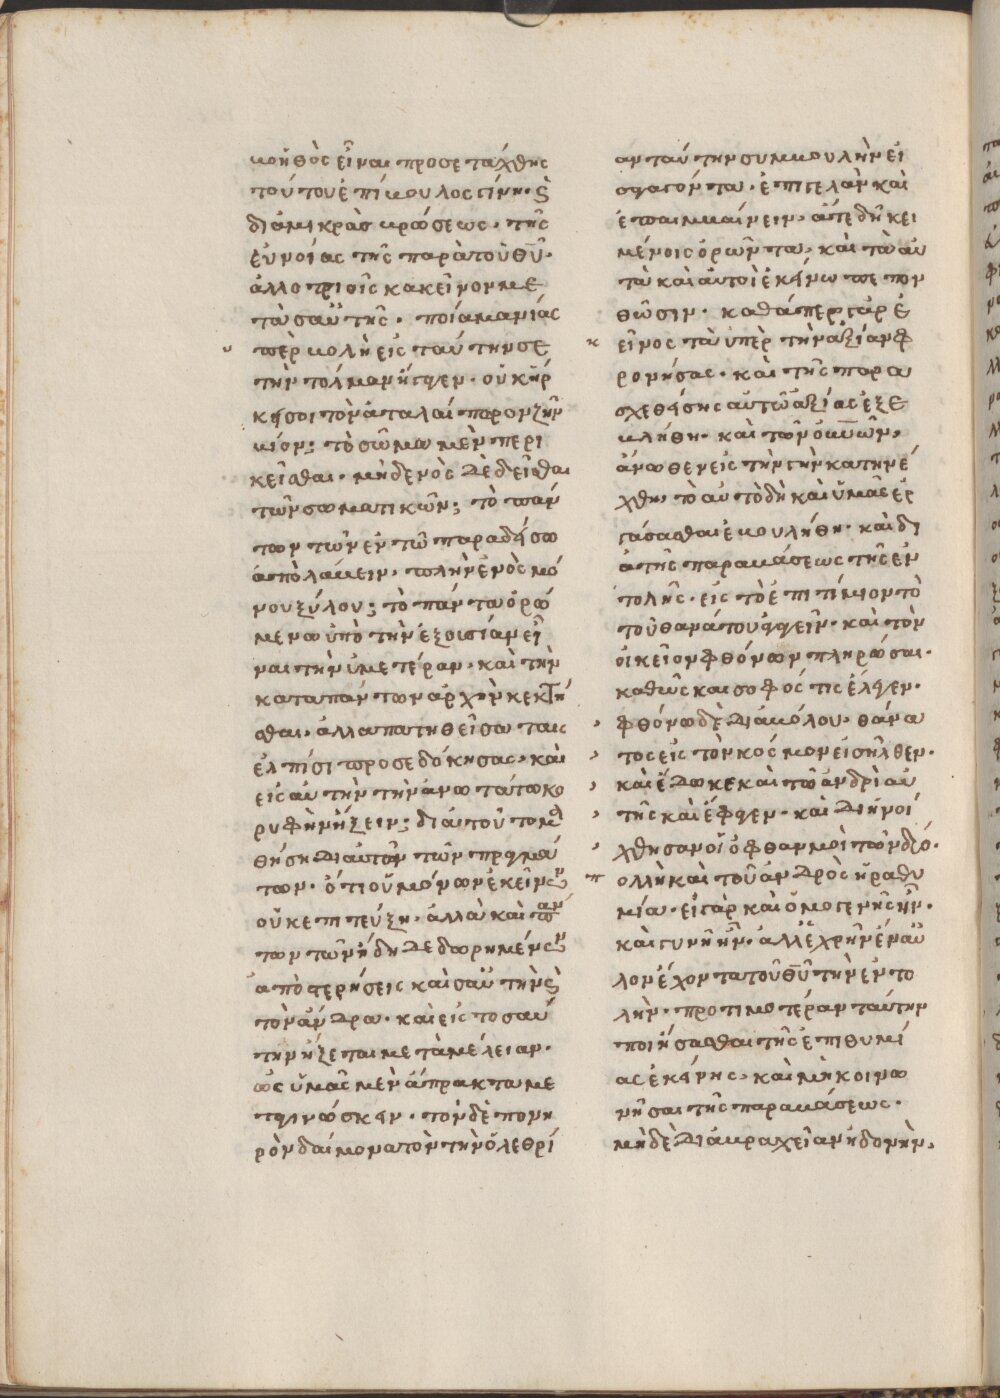 βοηθὸς εἶναι προσετάχθης
τούτου ἐπίβουλος γίνη· ϛ̀
διὰ μικρὰσ βρώσεως, τῆς
εὐνοίας τῆς παρὰ τοῦ θῡ·
ἀλλοτριοῖς κακεῖνον με
τὰ σαὐτῆς. ποία μανίας
ὑπερβολὴ εἰς ταύτην σε
τὴν τόλμαν ἤγαγεν. οὐκ ἤρ
κει σοι τὸν ἀταλαίπορον ζῆν
βίον; τὸ σῶμα μὲν περι
κεῖσθαι. μὴδενὸς δὲ δεῖσθαι
τῶν σωματικῶν; τὸ πάν
των τῶν ἐν τῶ παραδείσω
ἀπολάβειν, πλὴν ἑνὸς μό
νου ξύλου; τὸ πάντα ὁρώ
μενα ὑπὸ τὴν ἐξουσίαν εἶ
ναι τὴν ὑμετέραν, καὶ τὴν
κατα πάντων ἀρχὴν κεκτῆ
σθαι. ἀλλα πατηθεῖσα ταις
ἐλπίσι προσεδόκησας, καὶ
εἰς αὐτὴν τὴν ἀνωτάτω κο
ρυφὴν ἥξειν; διά τοῦτο μα
θήση δι αὐτῶν τῶν πραγμά
των. ὅτι οὐ μόνων ἐκείνων
οὐκ ἐπιτεύξη, ἀλλὰ καὶ πάν
των τῶν ἤδη δεδωρημένων
ἀποστερήσεις καὶ σαὐτὴν ϛ̀
τὸν ἄνδρα. καὶ εἰς τοσαύ
την ἥξεται μεταμέλειαν.
ὡς ὑμᾶς μὲν ἄπρακτα με
ταγινώσκειν. τὸν δὲ πονη
ρὸν δαίμονα τὸν τὴν ὀλεθρί
αν ταύτην συμβουλὴν εἰ
σαγόντα, ἐπιγελὰν καὶ
ἐπαιμβαίνειν, ἅτε δὴ κει
μένοις ὁρῶντα, καὶ τὰ αὐ
τὰ καὶ αὐτοὶ ἐκείνω πεπον
θῶσιν. καθάπερ γὰρ ἐ
κεῖνος τὰ ὑπὲρ τὴν ἀξίαν φ
ρονήσας, καὶ τῆς παρα
σχεθείσης αὐτῶ ἀξίας ἐξε
βλήθη. καὶ τῶν οὐνῶν,
ἄνωθεν εἰς τὴν γὴν κατηνέ
χθη, τὸ αὐτὸ δὴ καὶ ὕμᾶς ἐρ
γάσασθαι ἐβουλήθη, καὶ δι
ὰ τῆς παραβάσεως τῆς ἐν
τολῆς, εἰς τὸ ἐπιτίμιον τὸ
τοῦ θανάτου ἀγαγεῖν, καὶ τὸν
οἰκεῖον φθόνων πληρῶσαι.
καθὼς και σοφός τις ἔλεγεν.
φθόνω δὲ διαβόλου, θάνα
τος εἰς τὸν κόσμον εἰσῆλθεν.
καὶ ἔδωκε καὶ τῶ ἀνδρὶ αὐ
τῆς καὶ ἔφαγεν. καὶ διηνοί
χθησαν οἱ ὀφθαλμοὶ τῶν δύο.
πολλὴ καὶ τοῦ ἀνδρὸς ἡ ραθυ
μία. εἰ γὰρ καὶ ὁμογενὴς ἦν.
καὶ γυνὴ ἦν. ἀλλ' ἐχρῆν ἔναυ
λον ἔχοντα τοῦ θῡ τὴν ἐντο
λὴν, προτιμοτέραν ταύτην
ποιήσασθαι τῆς ἐπιθυμί
ας ἐκείνης, καὶ μὴ κοινω
νῆσαι τῆς παραβάσεως.
μὴδὲ διὰ βραχεῖαν ἡδονὴν,